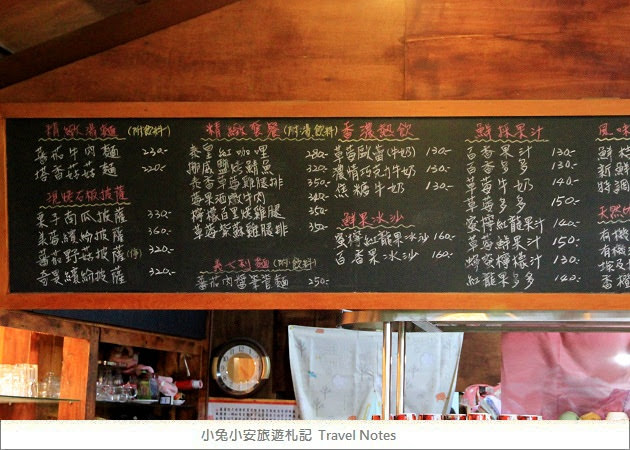 精緻湯麵 (附飲料)
蕃茄牛肉麵 230.-
塔香菇菇麵 220.-
現烤石板披薩
栗子南瓜披薩 330.-
果香繽紛披薩 360.-
蕃茄野菇披薩 320.-
奇異繽紛披薩 320.-
精緻套餐 (附湯飲料)
泰皇紅咖哩 280.-
挪威鹽烤鯖魚 320.-
香草雞腿排 350.-
香果酒燉牛肉 340.-
檸檬百里烤雞腿 350.-
草莓紫蘇雞腿排 350.-
義大利麵 (附飲料)
蕃茄肉醬筆管麵 250.-
香濃熱飲
草莓歐蕾(牛奶) 130.-
濃情巧克力(牛奶) 130.-
焦糖牛奶 130.-
鮮果冰沙
蜜檸紅龍果冰沙 160.-
百香果冰沙 160.-
鮮採果汁
百香果汁 130.-
百香多多 130.-
草莓牛奶 140.-
草莓多多 150.-
蜜檸紅龍果汁 140.-
草莓鮮果汁 150.-
蜂蜜檸檬汁 130.-
紅龍果多多 140.-
風味
天然
有機
有機
香橙
小兔小安旅遊札記 Travel Notes